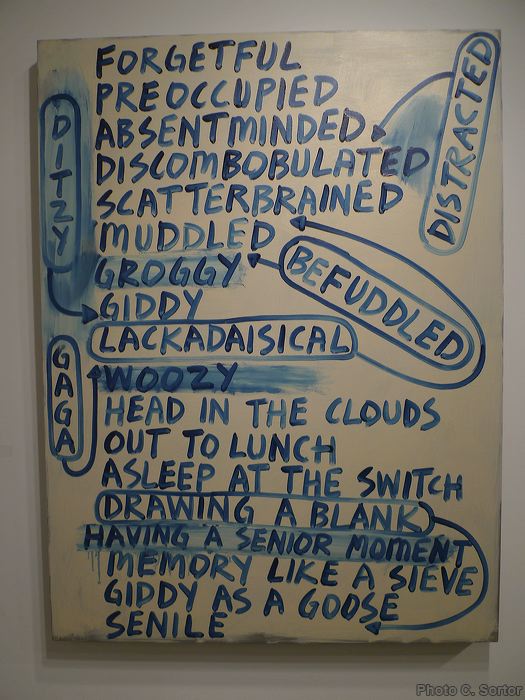 FORGETFUL
PREOCCUPIED
ABSENTMINDED
DISCOMBOBULATED
SCATTERBRAINED
MUDDLED
GROGGY
GIDDY
LACKADAISICAL
WOOZY
HEAD IN THE CLOUDS
OUT TO LUNCH
ASLEEP AT THE SWITCH
DRAWING A BLANK
HAVING A SENIOR MOMENT
MEMORY LIKE A SIEVE
GIDDY AS A GOOSE
SENILE
DITZY
GAGA
DISTRACTED
BEFUDDLED
Photo C. Sortor